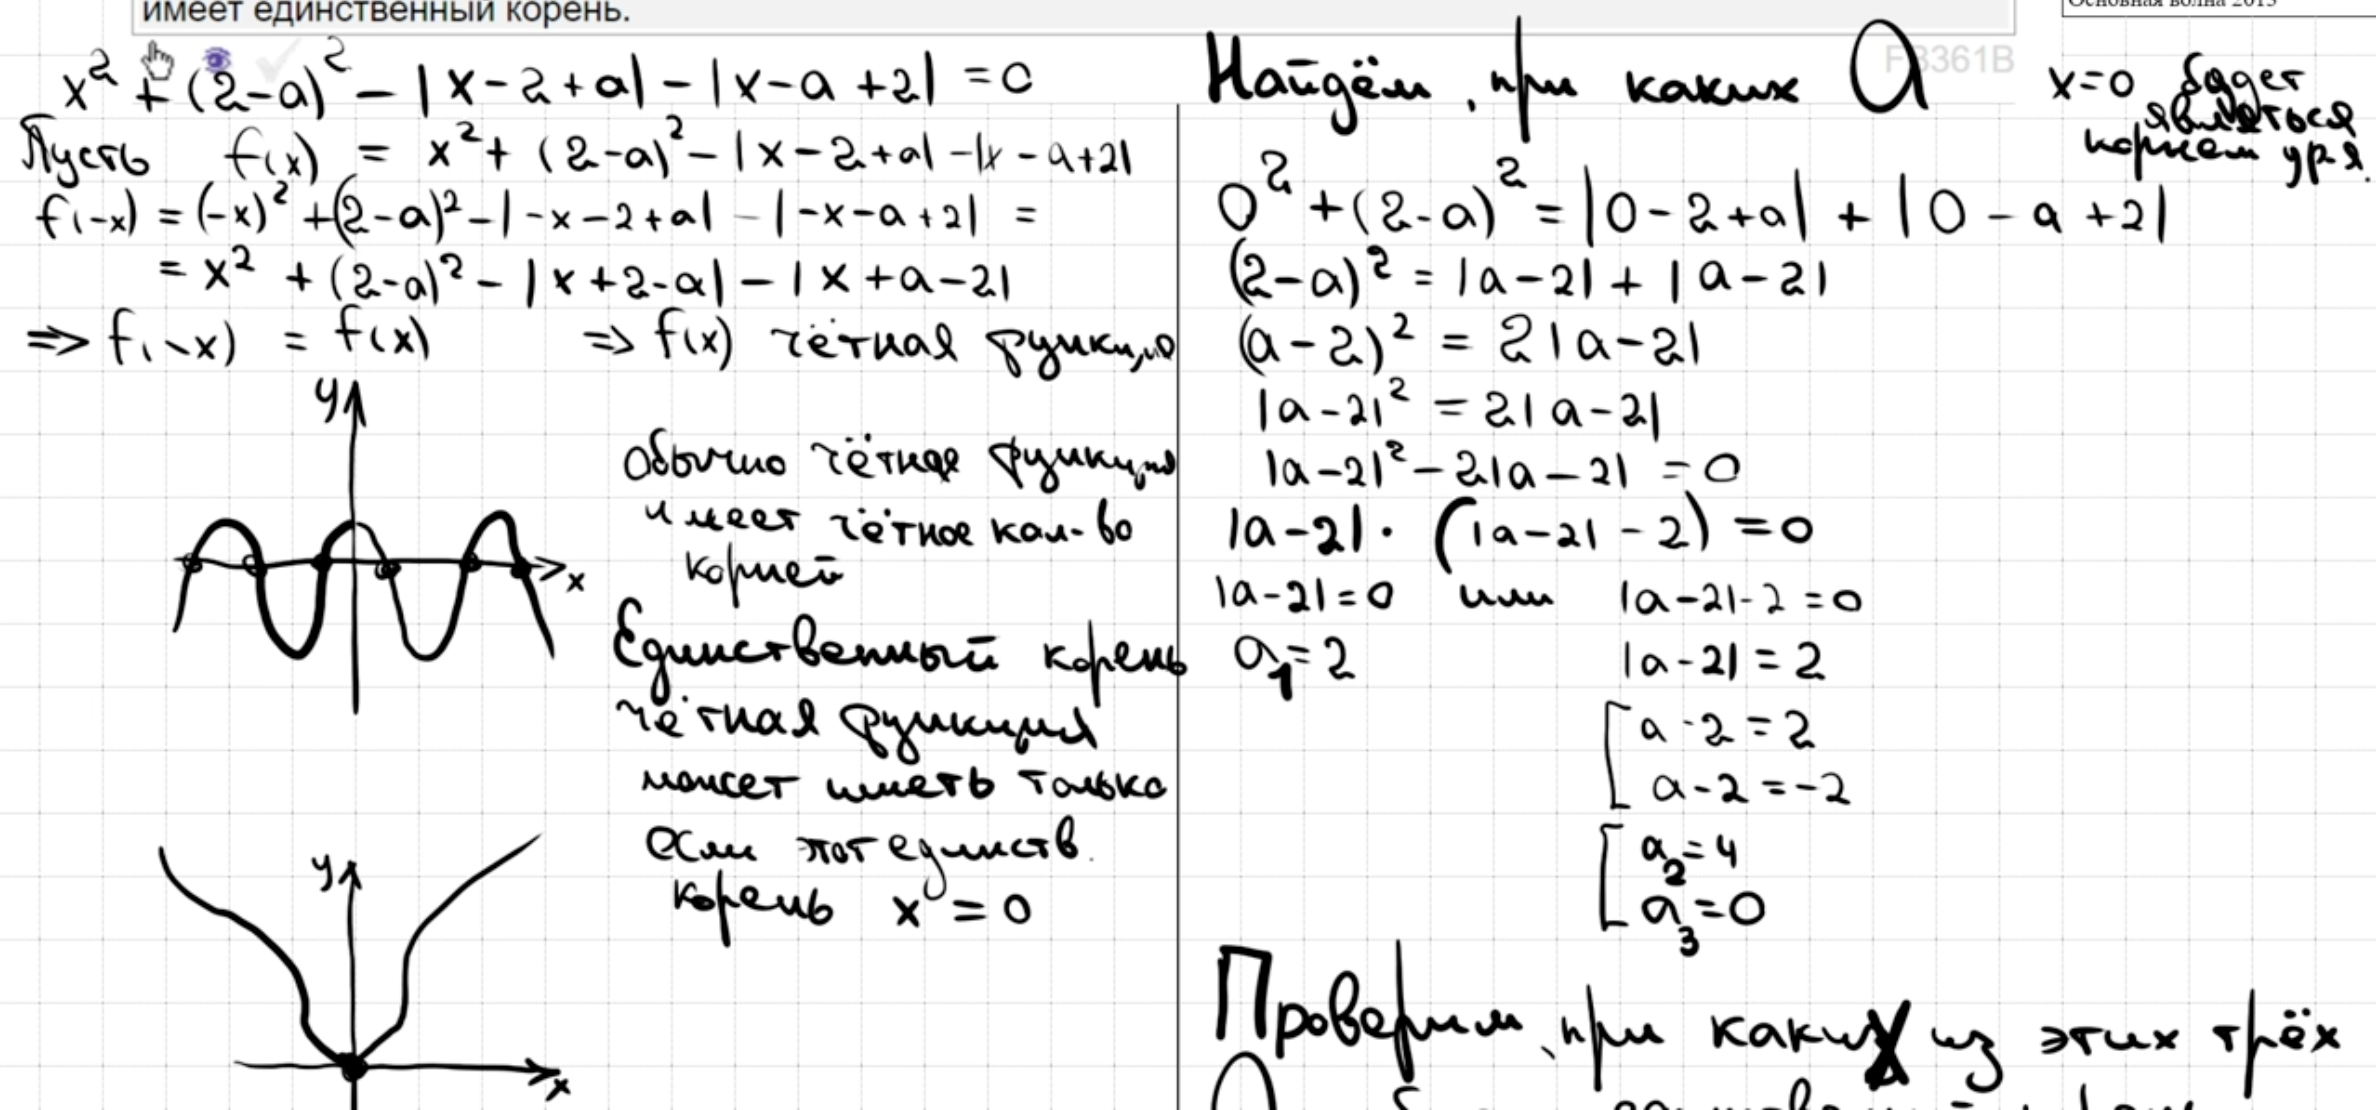 имеет единственный корень.
Основная волна 2013
FB361B
x² + (2-a)² - |x-2+a| - |x-a+2| = 0
Пусть f(x) = x² + (2-a)² - |x-2+a| - |x-a+2|
f(-x) = (-x)² + (2-a)² - |-x-2+a| - |-x-a+2| =
= x² + (2-a)² - |x+2-a| - |x+a-2|
=> f(-x) = f(x) => f(x) чётная функция
y
x
Обычно чётная функция
имеет чётное кол-во
корней
Единственный корень
чётная функция
может иметь только
если этот единств.
корень x = 0
y
x
Найдём, при каких a x=0 будет
являться
корнем ур-я.
0² + (2-a)² = |0-2+a| + |0-a+2|
(2-a)² = |a-2| + |a-2|
(a-2)² = 2|a-2|
|a-2|² = 2|a-2|
|a-2|² - 2|a-2| = 0
|a-2| · (|a-2| - 2) = 0
|a-2| = 0 или |a-2| - 2 = 0
a₁ = 2 |a-2| = 2
[ a-2 = 2
a-2 = -2
[ a₂ = 4
a₃ = 0
Проверим, при каких из этих трёх